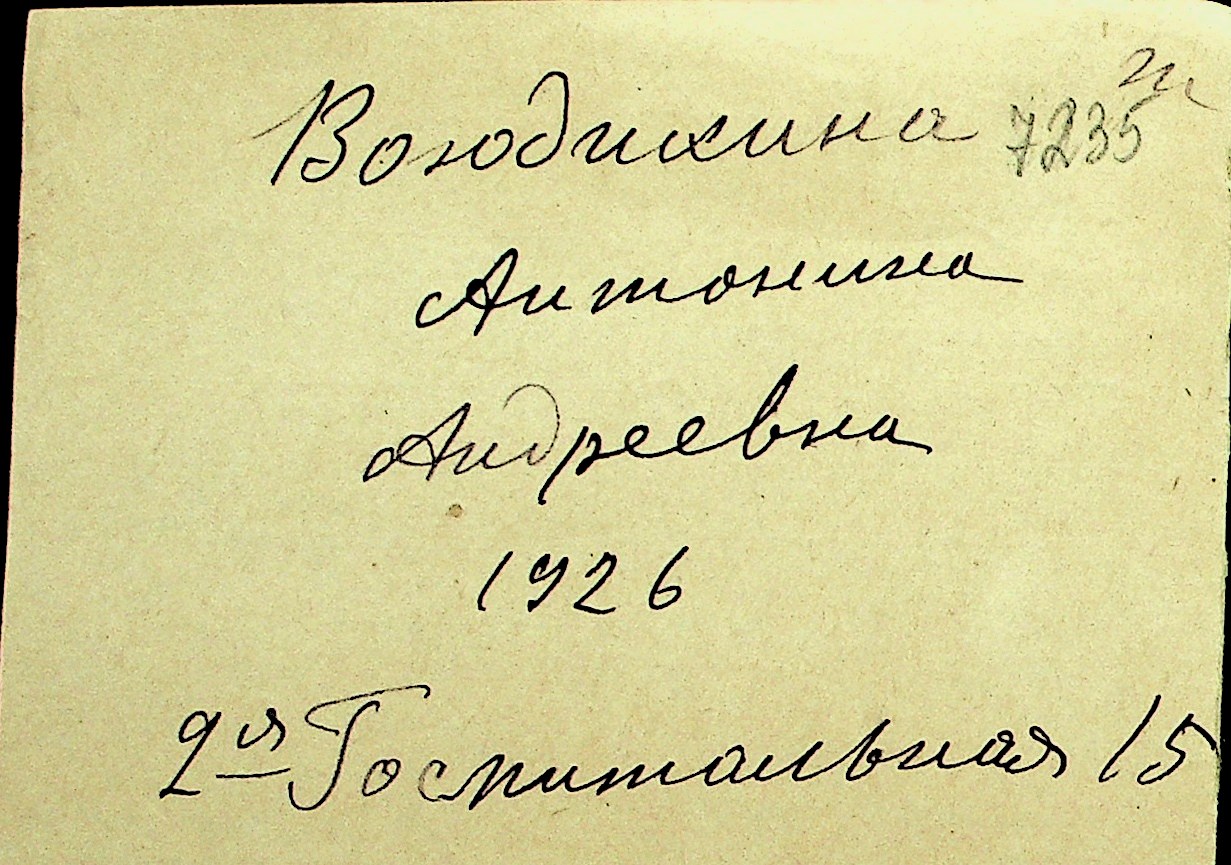 Воюдихина 7235
Антонина
Андреевна
1926
2ая Госпитальная 15